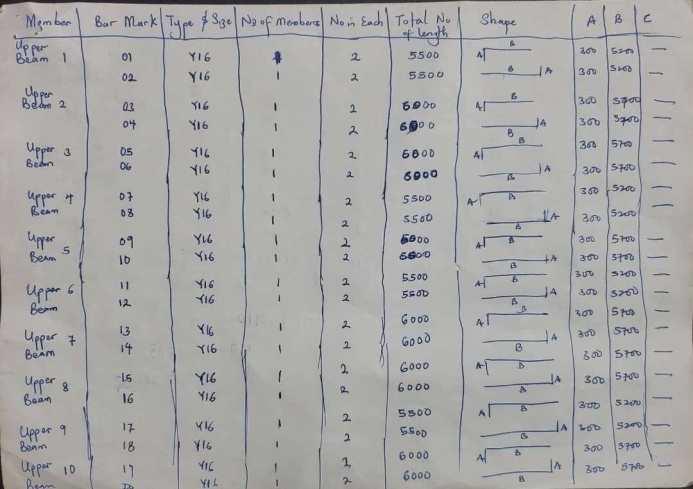 Member Bar Mark Type & Size No of Members No in Each Total No of length Shape A B C
Upper Beam 1 01 Y16 1 2 5500 A B 300 5200 —
02 Y16 1 2 5500 B A 300 5200 —
Upper Beam 2 03 Y16 1 2 6000 A B 300 5700 —
04 Y16 1 2 6000 B A 300 5700 —
Upper 3 05 Y16 1 2 6000 A B 300 5700 —
06 Y16 1 2 6000 B A 300 5700 —
Upper 4 Beam 07 Y16 1 2 5500 A B 300 5200 —
08 Y16 1 2 5500 B A 300 5200 —
Upper 5 Beam 09 Y16 1 2 6000 A B 300 5700 —
10 Y16 1 2 6000 B A 300 5700 —
Upper 6 11 Y16 1 2 5500 A B 300 5200 —
Beam 12 Y16 1 2 5500 B A 300 5200 —
Upper 7 13 Y16 1 2 6000 A B 300 5700 —
Beam 14 Y16 1 2 6000 B A 300 5700 —
Upper 8 15 Y16 1 2 6000 A B 300 5700 —
Beam 16 Y16 1 2 6000 B A 300 5700 —
Upper 9 17 Y16 1 2 5500 A B 300 5200 —
Beam 18 Y16 1 2 5500 B A 300 5200 —
Upper 10 19 Y16 1 2 6000 A B 300 5700 —
Beam 20 Y16 1 2 6000 B A 300 5700 —